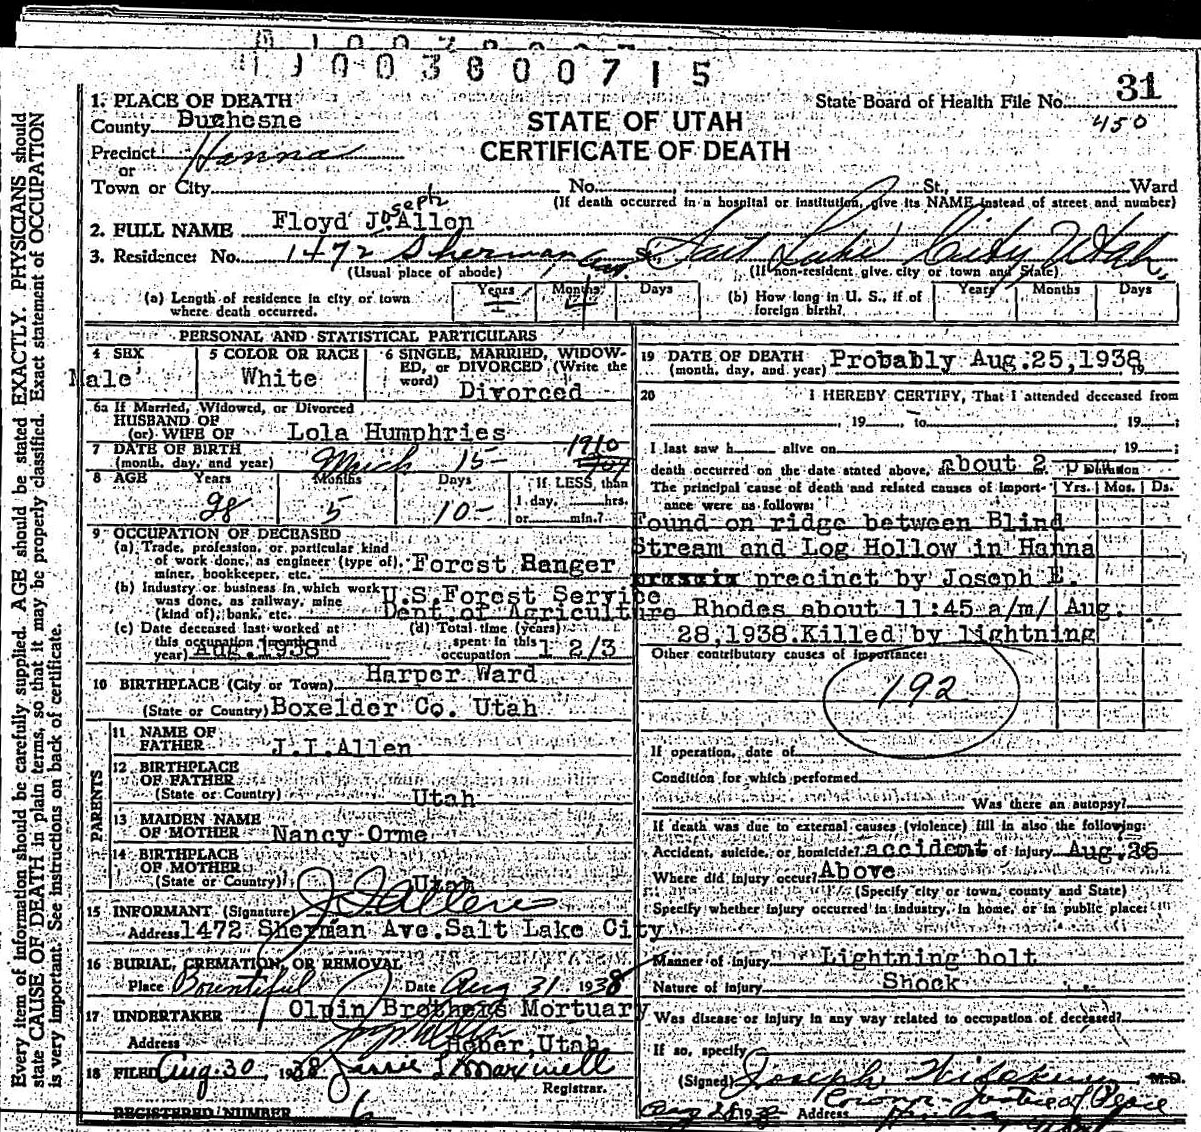 11003800715
State Board of Health File No. 31
450
1. PLACE OF DEATH
County Duchesne
STATE OF UTAH
CERTIFICATE OF DEATH
Precinct Hanna
or
Town or City No. St., Ward
(If death occurred in a hospital or institution, give its NAME instead of street and number)
2. FULL NAME Floyd Joseph Allen
3. Residence: No. 1472 Sherman Av. St. Salt Lake City Utah
(Usual place of abode) (If non-resident give city or town and State)
(a) Length of residence in city or town where death occurred. Years Months 4 Days (b) How long in U. S., if of foreign birth? Years Months Days
PERSONAL AND STATISTICAL PARTICULARS
4 SEX Male
5 COLOR OR RACE White
6 SINGLE, MARRIED, WIDOWED, or DIVORCED (Write the word) Divorced
6a If Married, Widowed, or Divorced
HUSBAND OF
(or) WIFE OF Lola Humphries
7 DATE OF BIRTH
(month, day, and year) March 15- 1910
8 AGE Years 28 Months 5 Days 10- If LESS than 1 day, hrs. or min.?
9 OCCUPATION OF DECEASED
(a) Trade, profession, or particular kind of work done, as engineer (type of), miner, bookkeeper, etc. Forest Ranger
(b) Industry or business in which work was done, as railway, mine (kind of), bank, etc. U.S. Forest Service
Dept. of Agriculture
(c) Date deceased last worked at this occupation (month and year) Aug. 1938
(d) Total time (years) spent in this occupation 1 2/3
10 BIRTHPLACE (City or Town) Harper Ward
(State or Country) Boxelder Co. Utah
PARENTS
11 NAME OF FATHER J.I.Allen
12 BIRTHPLACE OF FATHER (State or Country) Utah
13 MAIDEN NAME OF MOTHER Nancy Orme
14 BIRTHPLACE OF MOTHER (State or Country) Utah
15 INFORMANT (Signature) J I Allen
Address 1472 Sherman Ave. Salt Lake City
16 BURIAL, CREMATION, OR REMOVAL
Place Bountiful Date Aug 31 1938
17 UNDERTAKER Olpin Brothers Mortuary
Address Heber, Utah
18 FILED Aug. 30, 1938 Jessie L Maxwell
Registrar.
REGISTERED NUMBER 6
19 DATE OF DEATH
(month, day, and year) Probably Aug.25,1938
20 I HEREBY CERTIFY, That I attended deceased from
, 19 , to , 19 ;
I last saw h alive on , 19 ;
death occurred on the date stated above, about 2 p m
The principal cause of death and related causes of importance were as follows: Yrs. Mos. Ds.
Found on ridge between Blind
Stream and Log Hollow in Hanna
precinct by Joseph E.
Rhodes about 11:45 a/m/ Aug.
28,1938.Killed by lightning
Other contributory causes of importance:
192
If operation, date of
Condition for which performed
Was there an autopsy?
If death was due to external causes (violence) fill in also the following:
Accident, suicide, or homicide? accident of injury Aug.25
Where did injury occur? Above
(Specify city or town, county and State)
Specify whether injury occurred in industry, in home, or in public place:
Manner of injury Lightning bolt
Nature of injury Shock
Was disease or injury in any way related to occupation of deceased?
If so, specify
(Signed) Joseph M.D.
Aug 28 1938 Address
Justice of Peace
Every item of information should be carefully supplied. AGE should be stated EXACTLY. PHYSICIANS should
state CAUSE OF DEATH in plain terms, so that it may be properly classified. Exact statement of OCCUPATION
is very important. See instructions on back of certificate.